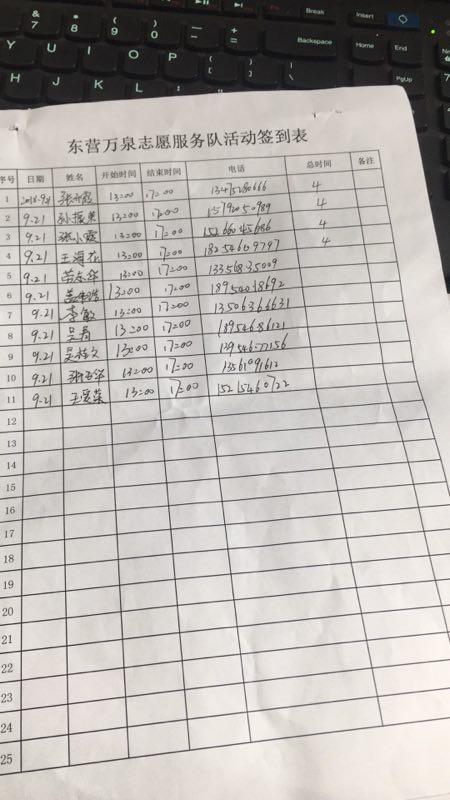 Break
Insert
Backspace
Home
End
PgUp
Y U I O P
H J K L
东营万泉志愿服务队活动签到表
序号 日期 姓名 开始时间 结束时间 电话 总时间 备注
1 2018.9.21 13:00 17:00 13475280666 4
2 9.21 孙振荣 13:00 17:00 15192050989 4
3 9.21 张小霞 13:00 17:00 15266045686 4
4 9.21 王海花 13:00 17:00 18254609797 4
5 9.21 13:00 17:00 13356835009
6 9.21 13:00 17:00 18954038692
7 9.21 李敏 13:00 17:00 13506366631
8 9.21 吴青 13:00 17:00 18954686121
9 9.21 吴桂文 13:00 17:00 13954677156
10 9.21 13:00 17:00 13561091612
11 9.21 王爱荣 13:00 17:00 15215460722
12
13
14
15
16
17
18
19
20
21
22
23
24
25